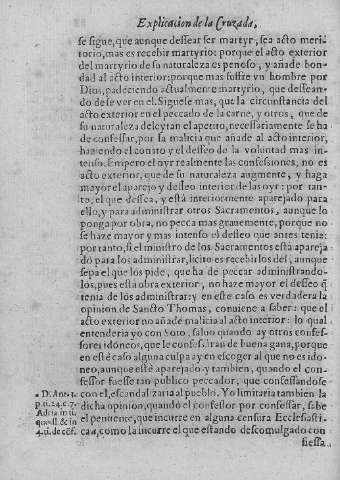 Explicacion de la Cruzada,
se sigue, que aunque dessear ser martyr, sea acto meri-
torio, mas es recebir martyrio: porque el acto exterior
del martyrio de su naturaleza es penoso, y añade bon-
dad al acto interior: porque mas suffre vn hombre por
Dios, padeciendo actualmente martyrio, que dessean-
do de se ver en el. Siguese mas, que la circunstancia del
acto exterior en el peccado de la carne, y otros, que de
su naturaleza deleytan el apetito, necessariamente se ha
de confessar, por la malicia que añade al acto interior,
haziendo el conato y el desseo de la voluntad mas in-
tenso. Empero el oyr realmente las confessiones, no es
acto exterior, que de su naturaleza augmente, y haga
mayor el aparejo y desseo interior de las oyr: por tan-
to, el que dessea, y está interiormente aparejado para
ello, y para administrar otros Sacramentos, aunque lo
ponga por obra, no pecca mas grauemente, porque no
se haze mayor y mas intenso el desseo que antes tenia:
por tanto, si el ministro de los Sacramentos está apareja
do para los administrar, licito es recebir los del, aunque
sepa el que los pide, que ha de peccar administrando-
los, pues esta obra exterior, no haze mayor el desseo q̃
tenia de los administrar: y en este caso es verdadera la
opinion de Sancto Thomas, conuiene a saber: que el
acto exterior no añade malicia al acto interior: lo qual
entenderia yo con Soto, saluo quando ay otros confes-
sores idoneos, que le confessáran de buena gana, porque
en este caso alguna culpa ay en escoger al que no es ido-
neo, aunque esté aparejado: y tambien, quando el con-
fessor fuesse tan publico peccador, que confessandose
con el, escandalizaria al pueblo. Yo limitaria tambien la
dicha opinion, quando el confessor por confessar, sabe
el penitente, que incurre en alguna censura Ecclesiasti-
ca a, como la incurre el que estando descomulgado con
fiessa.
a D. Anto. 3.
p. ti. 24. c. 7.
Adria. in ti.
quæ. ll. & in
4. ti. de cõf.